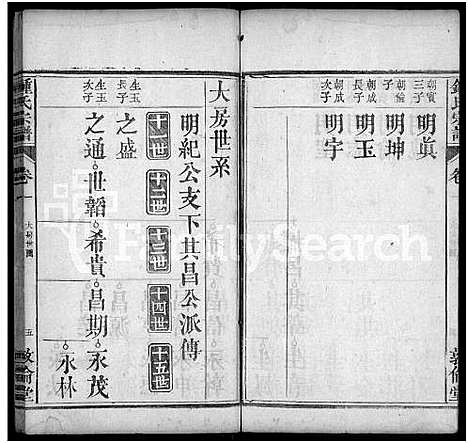 鍾氏宗譜
卷一
敦倫堂
朝賓
三子
明眞
朝
子
明坤
朝成
長子
明玉
朝成
次子
明宇
大房世系
明紀公支下其昌公派傳
十一世
十二世
十三世
十四世
十五世
生玉
長子
之盛
生玉
次子
之通
世韜
希貴
昌期
永茂
永林
鍾氏宗譜
卷一
大房世圖
五
敦倫堂
FamilySearch